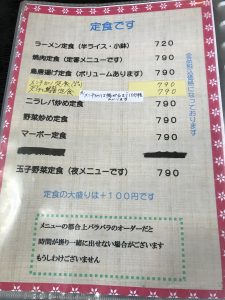 定食です
ラーメン定食（半ライス・小鉢） 720
焼肉定食（定番メニューです） 790
鳥唐揚げ定食（ボリュームあります） 790
790
790
ニラレバ炒め定食 790
野菜炒め定食 790
マーボー定食 790
玉子野菜定食（夜メニューです） 790
定食の大盛りは＋100円です
メニューの都合上バラバラのオーダーだと
時間が掛り一緒に出せない場合がございます
もうしわけございません
になっております